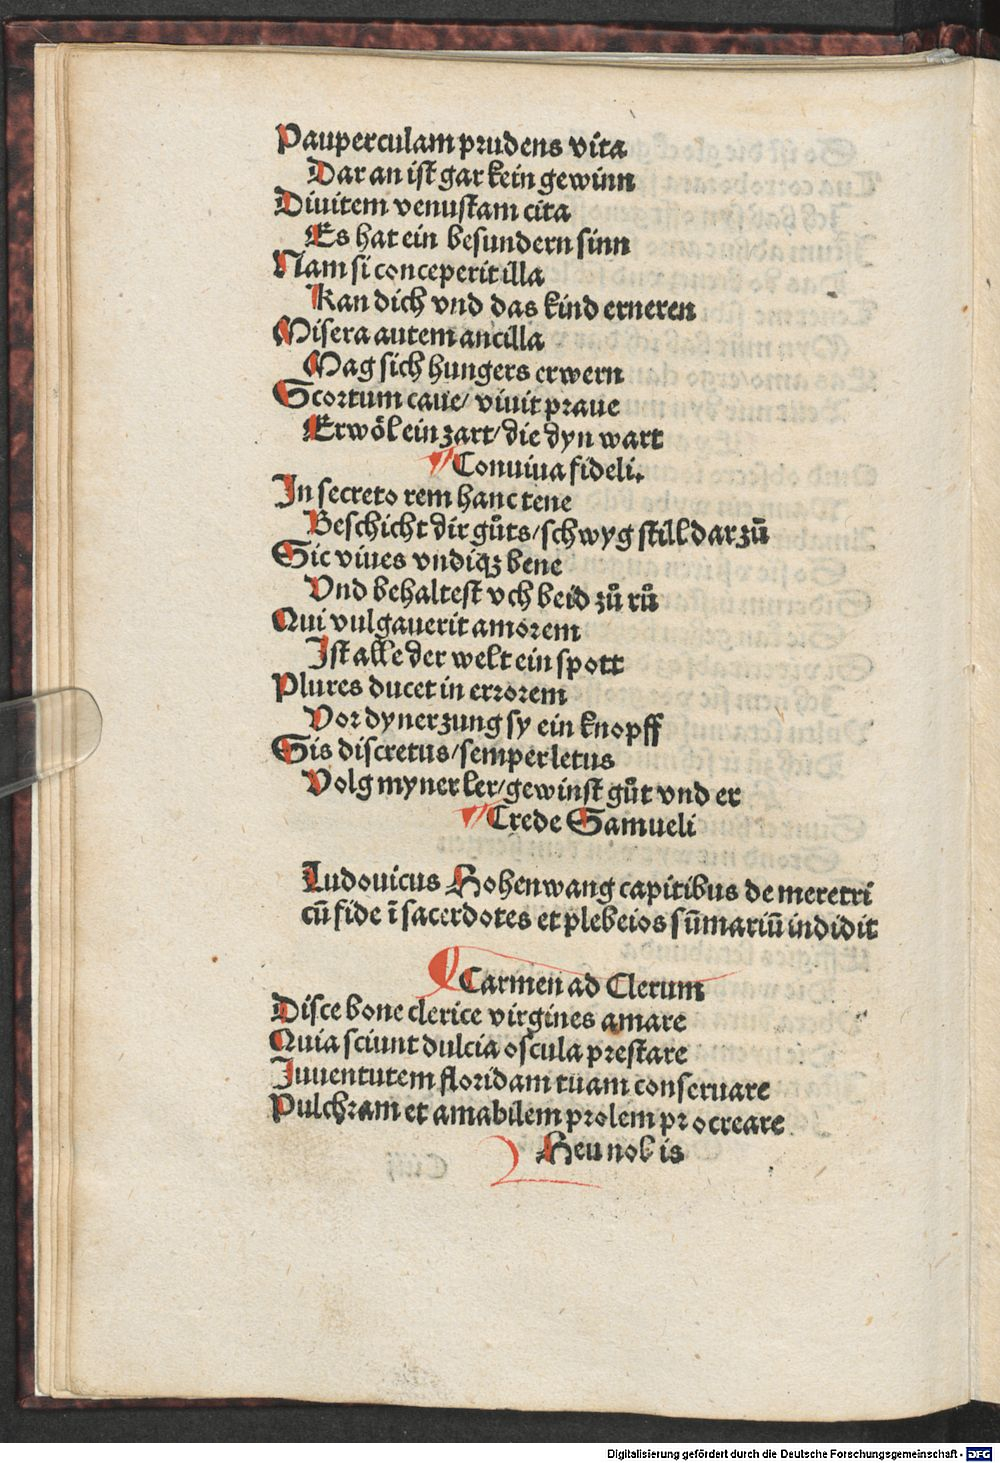 Pauperculam prudens vita
Dar an ist gar kein gewinn
Diuitem venustam cita
Es hat ein besundern sinn
Nam si conceperit illa
Kan dich vnd das kind erneren
Misera autem ancilla
Mag sich hungers erwern
Scortum caue/ viuit praue
Erwöl ein zart/ die dyn wart
Conuiua fideli.
In secreto rem hanc tene
Beschicht dir gůts/ schwyg still dar zů
Sic viues vndiqꝫ bene
Vnd behaltest vch beid zů rů
Qui vulgauerit amorem
Ist alle der welt ein spott
Plures ducet in errorem
Vor dyner zung sy ein knopff
Sis discretus/ semper letus
Volg myner ler/ gewinst gůt vnd er
Crede Samueli
Ludouicus Hohenwang capitibus de meretri
cū fide ī sacerdotes et plebeios sūmariū indidit
Carmen ad Clerum
Disce bone clerice virgines amare
Quia sciunt dulcia oscula prestare
Iuuentutem floridam tuam conseruare
Pulchram et amabilem prolem procreare
Heu nobis
Digitalisierung gefördert durch die Deutsche Forschungsgemeinschaft - DFG